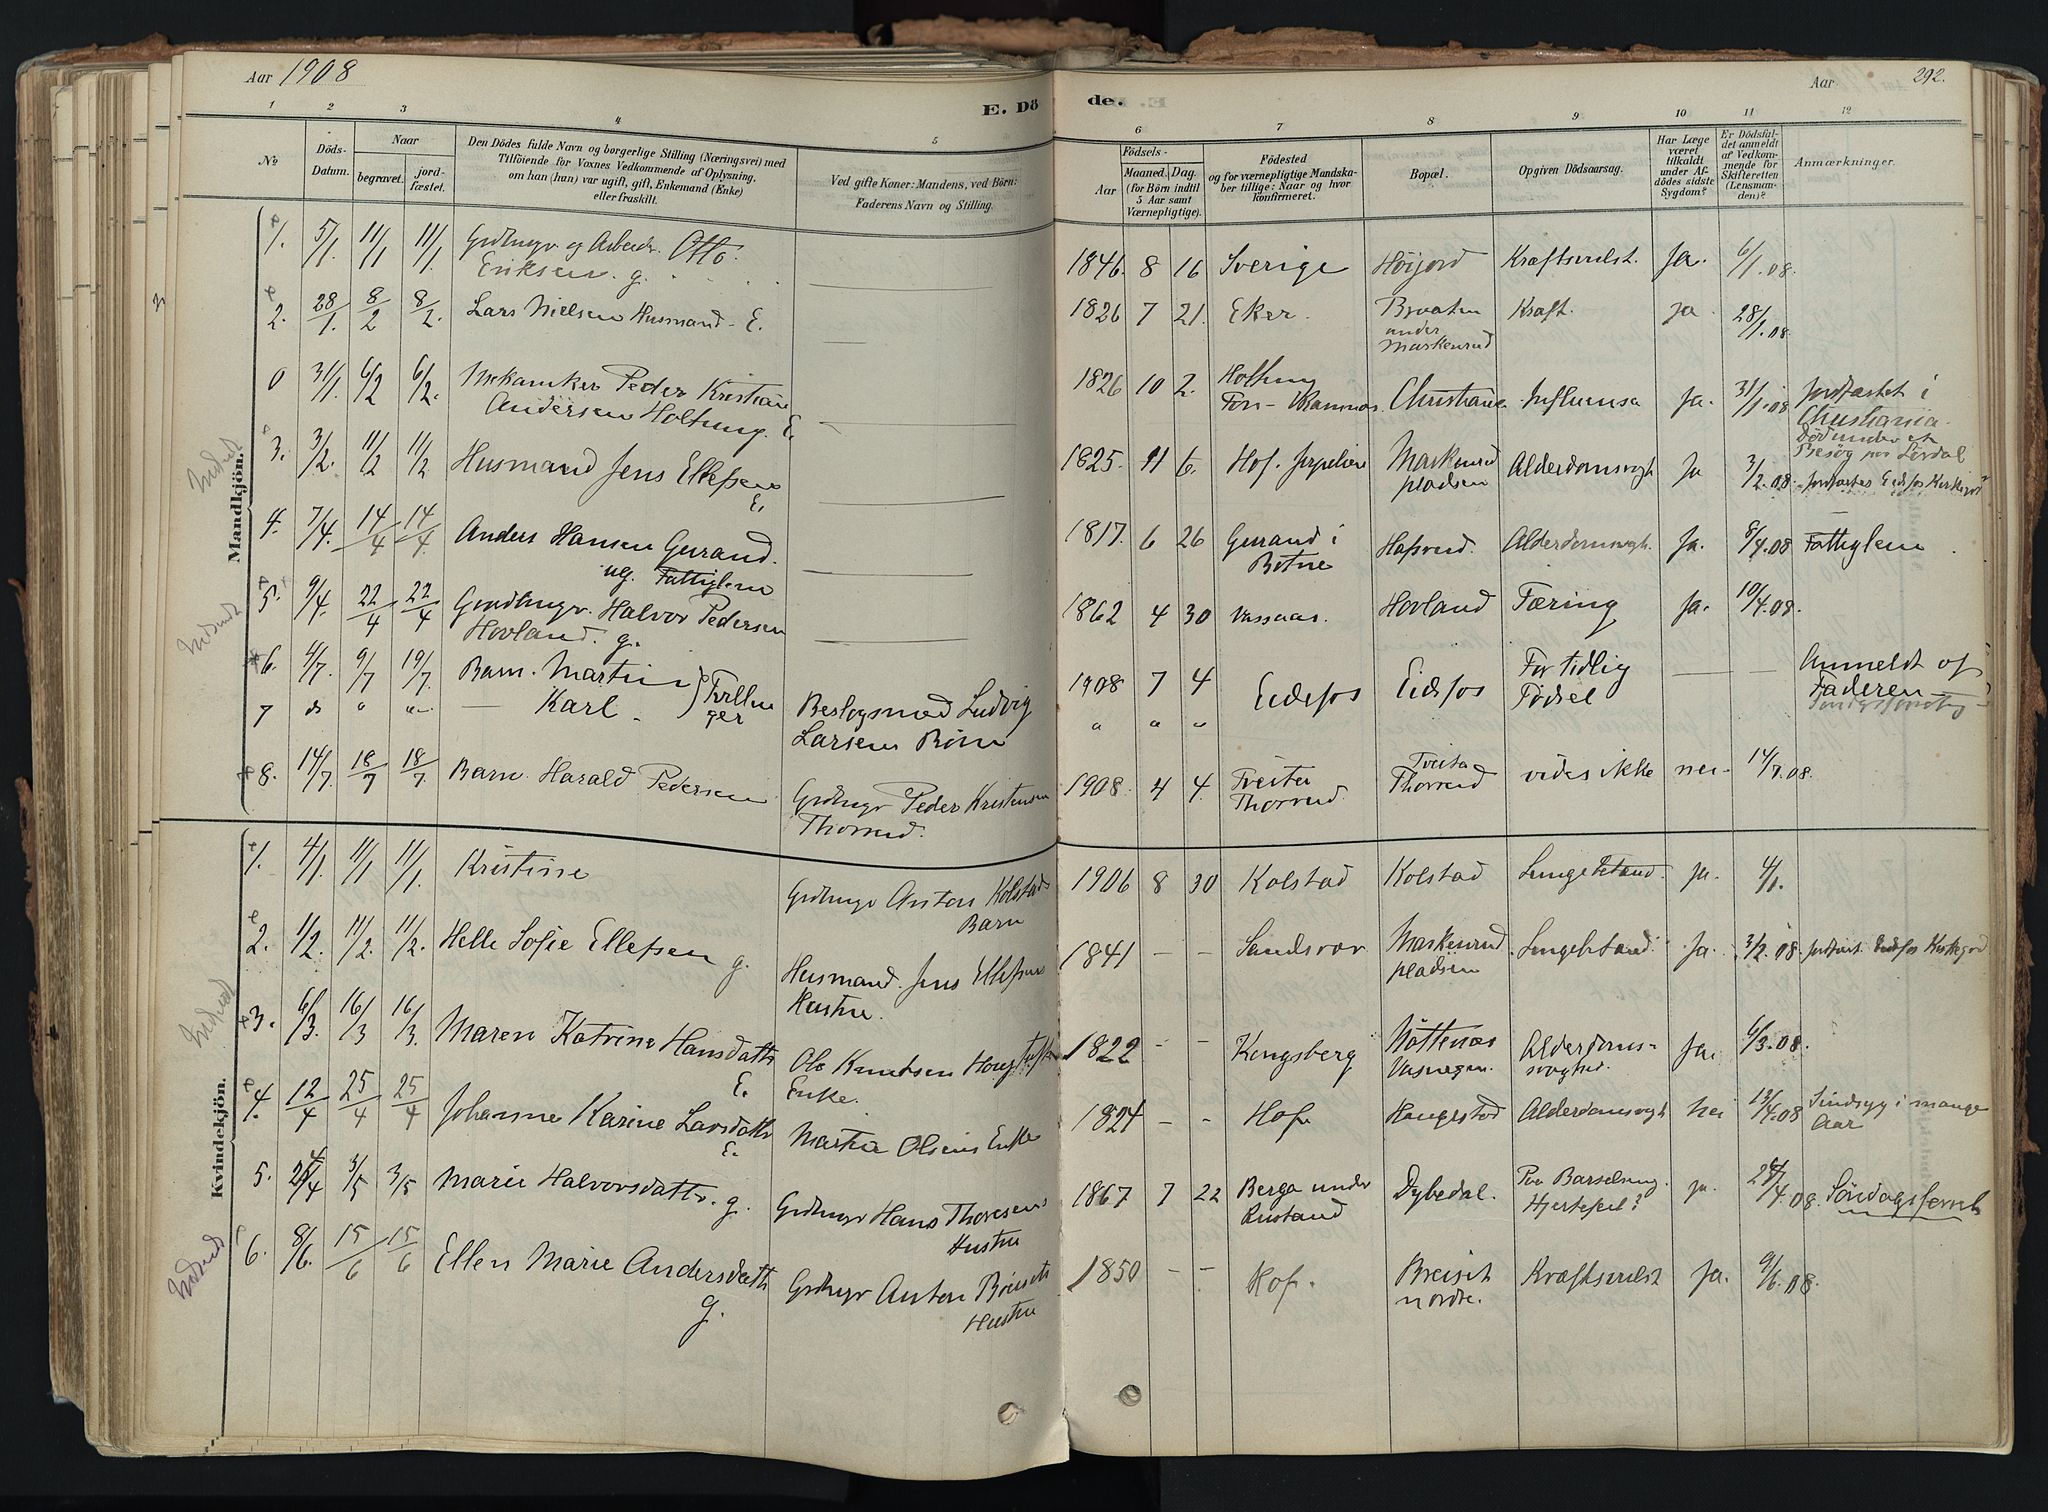 Aar 1908
E. Dö
de.
Aar
292.
1 2 3 4 5 6 7 8 9 10 11 12
No
Döds-
Datum.
Naar
begravet.
jord-
fæstet.
Den Dödes fulde Navn og borgerlige Stilling (Næringsvei) med
Tilföiende for Voxnes Vedkommende af Oplysning,
om han (hun) var ugift, gift, Enkemand (Enke)
eller fraskilt.
Ved gifte Koner: Mandens, ved Börn:
Faderens Navn og Stilling.
Födsels-
Aar
Maaned. Dag.
(for Börn indtil
5 Aar samt
Værnepligtige).
Födested
og for værnepligtige Mandska-
ber tillige: Naar og hvor
konfirmeret.
Bopæl.
Opgiven Dödsaarsag.
Har Læge
været
tilkaldt
under Af-
dödes sidste
Sygdom?
Er Dödsfal-
det anmeldt
af Vedkom-
mende for
Skifteretten
(Lensman-
den)?
Anmærkninger.
Mandkjön.
1. 5/1 11/1 11/1 Grdbrugr og Arbeidr. Otto
Eriksen. g. 1846. 8 16 Sverige Høijord Kræftsvulst. Ja. 6/1.08.
2. 28/1. 8/2 8/2. Lars Nielsen Husmand. E. 1826 7 21. Eker. Braaten
under
Maskerud Kræft. Ja. 28/1.08
0 31/1. 6/2 6/2. Mekaniker Peder Kristian
Andersen Holtung. E. 1826 10 2. Holtung
Fon - Ramnæs. Christiania Influensa Ja. 31/1.08 jordfæstet i
Christiania
Død under et
Besøg
3. 3/2. 11/2 11/2 Husmand Jens Ellefsen
E. 1825. 11 6. Hof. Maskerud
pladsen Alderdomsvagh Ja 3/2.08 jordfæstes Eidsfos Kirkegrd
4. 7/4. 14/4 14/4 Anders Hansen Gurand.
ug. Fattiglem 1817. 6 26 Gurand i
Botne Hafsrud. Alderdomsvagh. Ja. 8/4.08 Fattiglem
5. 9/4. 22/4 22/4 Grdbrugr. Halvor Pedersen
Hovland. g. 1862 4 30 Vassaas. Hovland Tæring Ja. 10/4.08.
6. 4/7. 9/7 19/7. Barn. Martin } Tvillin
ger 1908 7 4 Eidsfos Eidsfos For tidlig
Fødsel — — Anmeldt af
Faderen
7 do " " — Karl Beslagsmed Ludvig
Larsens Børn " " "
8. 14/7. 18/7 18/7 Barn Harald Pedersen Grdbrugr Peder Kristensen
Thorrud. 1908. 4 4. Tveiten
Thorrud. Tveita
Thorrud vides ikke nei- 14/7.08.
Kvindekjön.
1. 4/1. 11/1 11/1. Kristine Grdbrugr Anton Kolstads
Barn 1906 8 30 Kolstad Kolstad Lungebetænd. Ja. 4/1.
2. 1/2. 11/2. 11/2. Helle Sofie Ellefsen g. Husmand Jens Ellefsens
Hustru. 1841 - - Sandsvær Maskerud
pladsen Lungebetænd. Ja. 3/2.08. jordfæst. Eidsfos Kirkegrd
3. 6/3. 16/3 16/3. Maren Katrine Hansdattr
E. Ole Knutsen
Enke. 1822 - - Kongsberg Nøttenæs
Alderdoms-
svaghed. Ja. 6/3.08.
4. 12/4 25/4 25/4 Johanne Karine Larsdattr
E. Martin Olsens Enke 1824 - - Hof Haugestad Alderdomsvagh nei 13/4.08 Sindssyg i mange
Aar
5. 24/4 3/5 3/5 Marie Halvorsdattr. g. Grdbrugr Hans Thoresens
Hustru 1867 7 22 Berga under
Rustand Dybedal. Paa Barselseng.
Hjertefeil? Ja. 28/4.08 Söndagsfornt
6. 8/6. 15/6 15/6 Ellen Marie Andersdattr
g. Grdbrugr Anton Breisets
Hustru 1850 - - Hof. Breiset
nordre. Kræftsvulst Ja. 9/6.08.